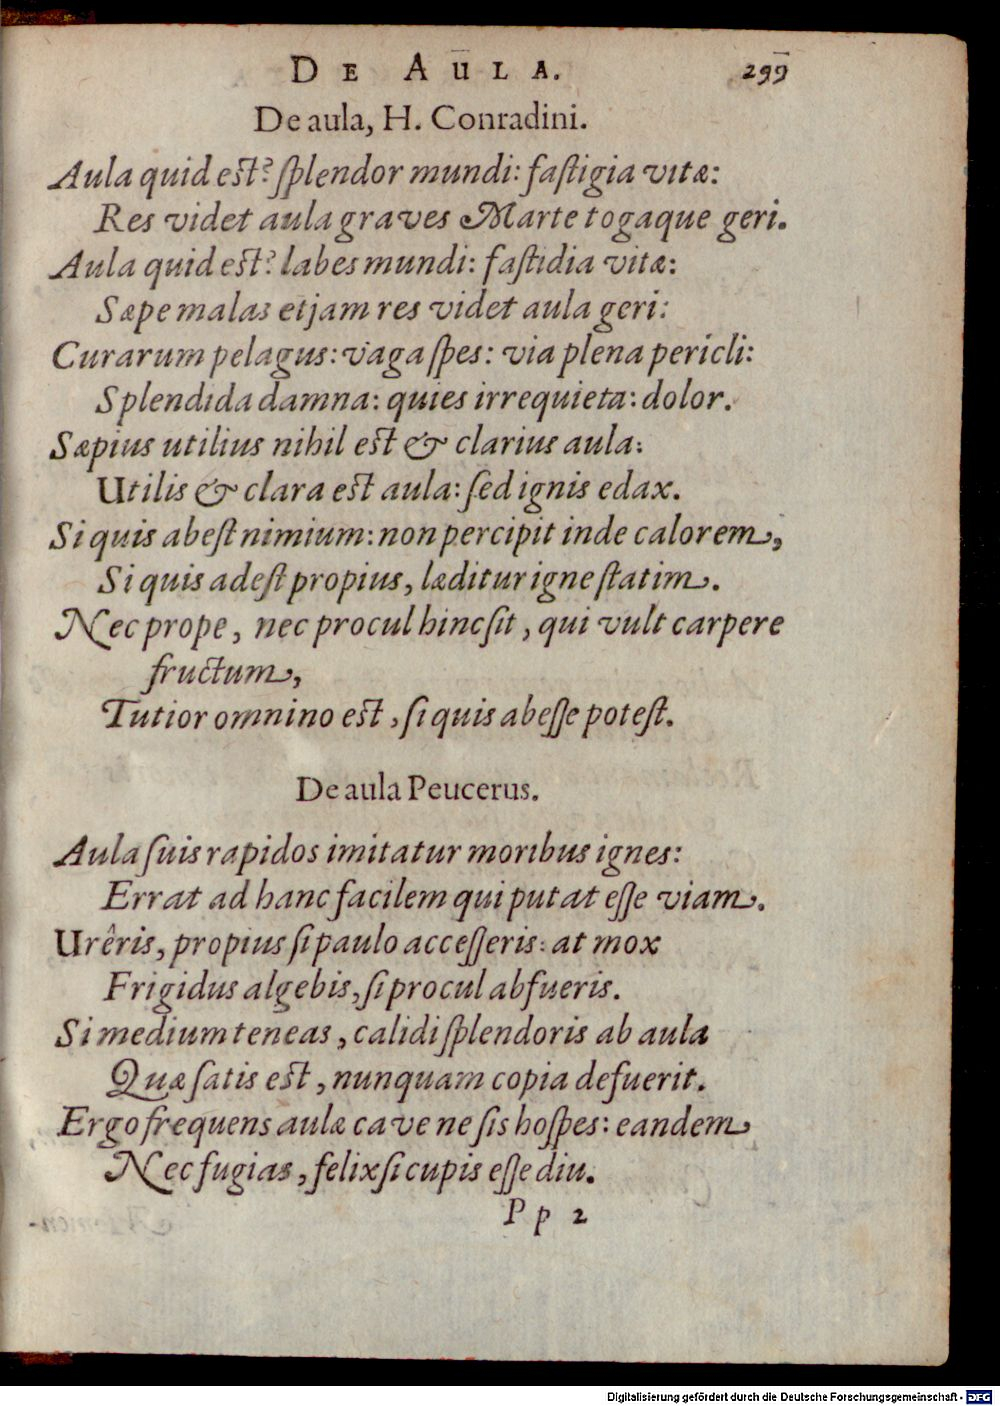 DE AULA. 299
De aula, H. Conradini.
Aula quid est? ſplendor mundi: faſtigia vitæ:
Res videt aula graves Marte togaque geri.
Aula quid est? labes mundi: faſtidia vitæ:
Sæpe malas etjam res videt aula geri:
Curarum pelagus: vaga ſpes: via plena pericli:
Splendida damna: quies irrequieta: dolor.
Sæpius utilius nihil est & clarius aula:
Utilis & clara est aula: ſed ignis edax.
Si quis abeſt nimium: non percipit inde calorem,
Si quis adeſt propius, læditur igne ſtatim.
Nec prope, nec procul hinc ſit, qui vult carpere
fructum,
Tutior omnino est, ſi quis abeſſe poteſt.
De aula Peucerus.
Aula ſuis rapidos imitatur moribus ignes:
Errat ad hanc facilem qui putat eſſe viam.
Urêris, propius ſi paulo acceſſeris: at mox
Frigidus algebis, ſi procul abfueris.
Si medium teneas, calidi ſplendoris ab aula
Quæ ſatis est, nunquam copia defuerit.
Ergo frequens aulæ cave ne ſis hoſpes: eandem
Nec fugias, felix ſi cupis eſſe diu.
Pp 2
Digitalisierung gefördert durch die Deutsche Forschungsgemeinschaft - DFG